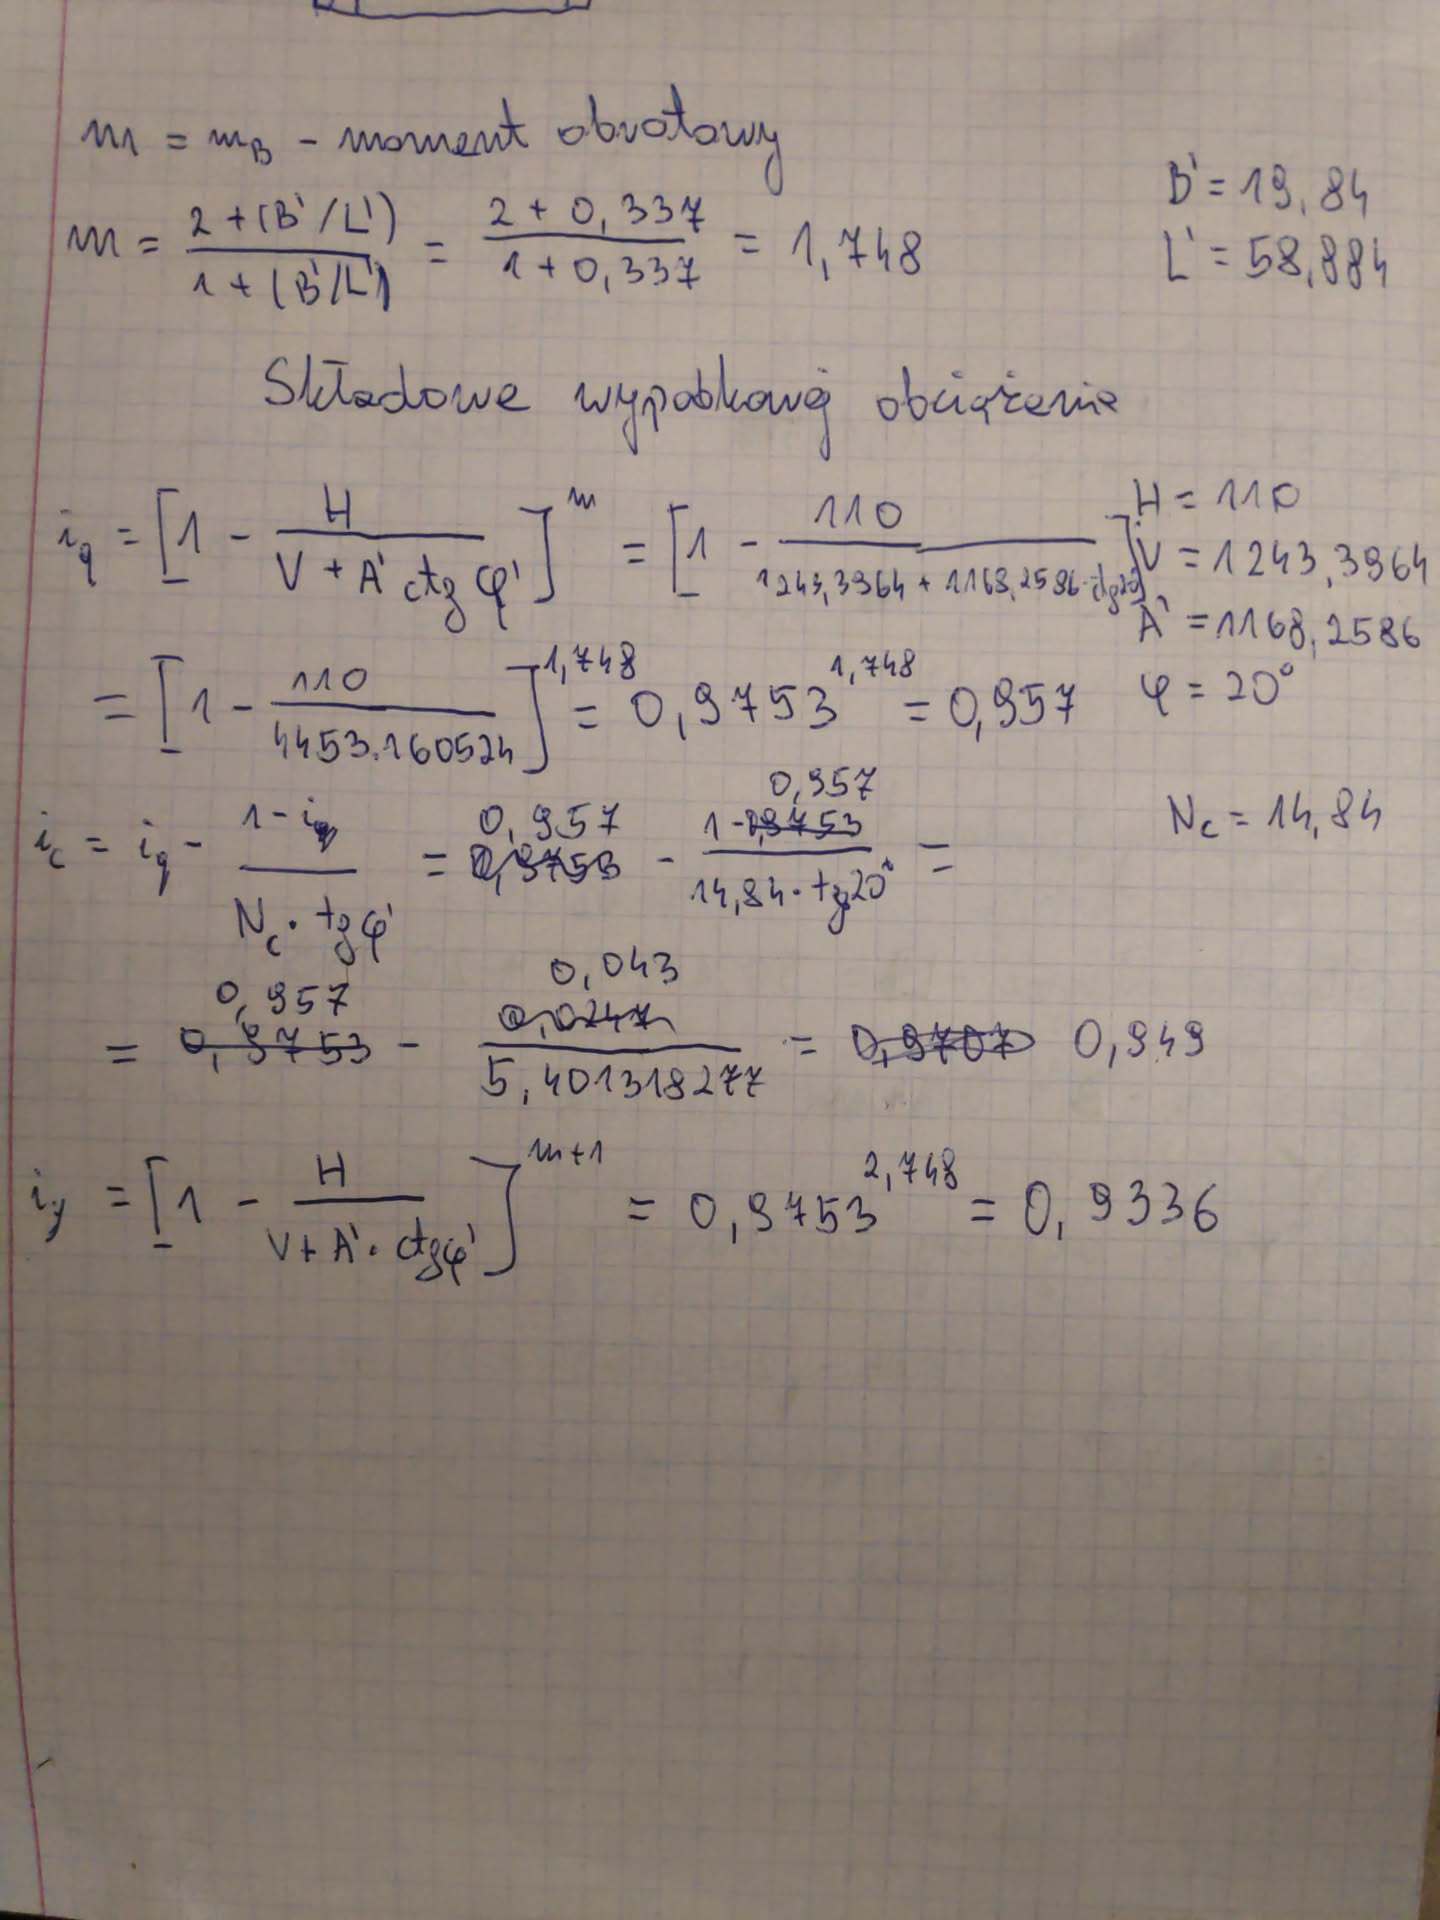 m = m_B - moment obrotowy
m = (2 + (B'/L')) / (1 + (B'/L')) = (2 + 0,337) / (1 + 0,337) = 1,748
B' = 19,84
L' = 58,884
Składowe wypadkowej obciążenia
i_q = [1 - H / (V + A' ctg φ')]^m = [1 - 110 / (1243,3964 + 1168,2586 · ctg20)]
H = 110
V = 1243,3964
A' = 1168,2586
φ = 20°
= [1 - 110 / 4453.160524]^1,748 = 0,9753^1,748 = 0,957
i_c = i_q - (1 - i_q) / (N_c · tg φ') = 0,957 - (1 - 0,957) / (14,84 · tg20°) =
N_c = 14,84
= 0,957 - 0,043 / 5,401318277 = 0,949
i_γ = [1 - H / (V + A' · ctg φ')]^m+1 = 0,9753^2,748 = 0,9336